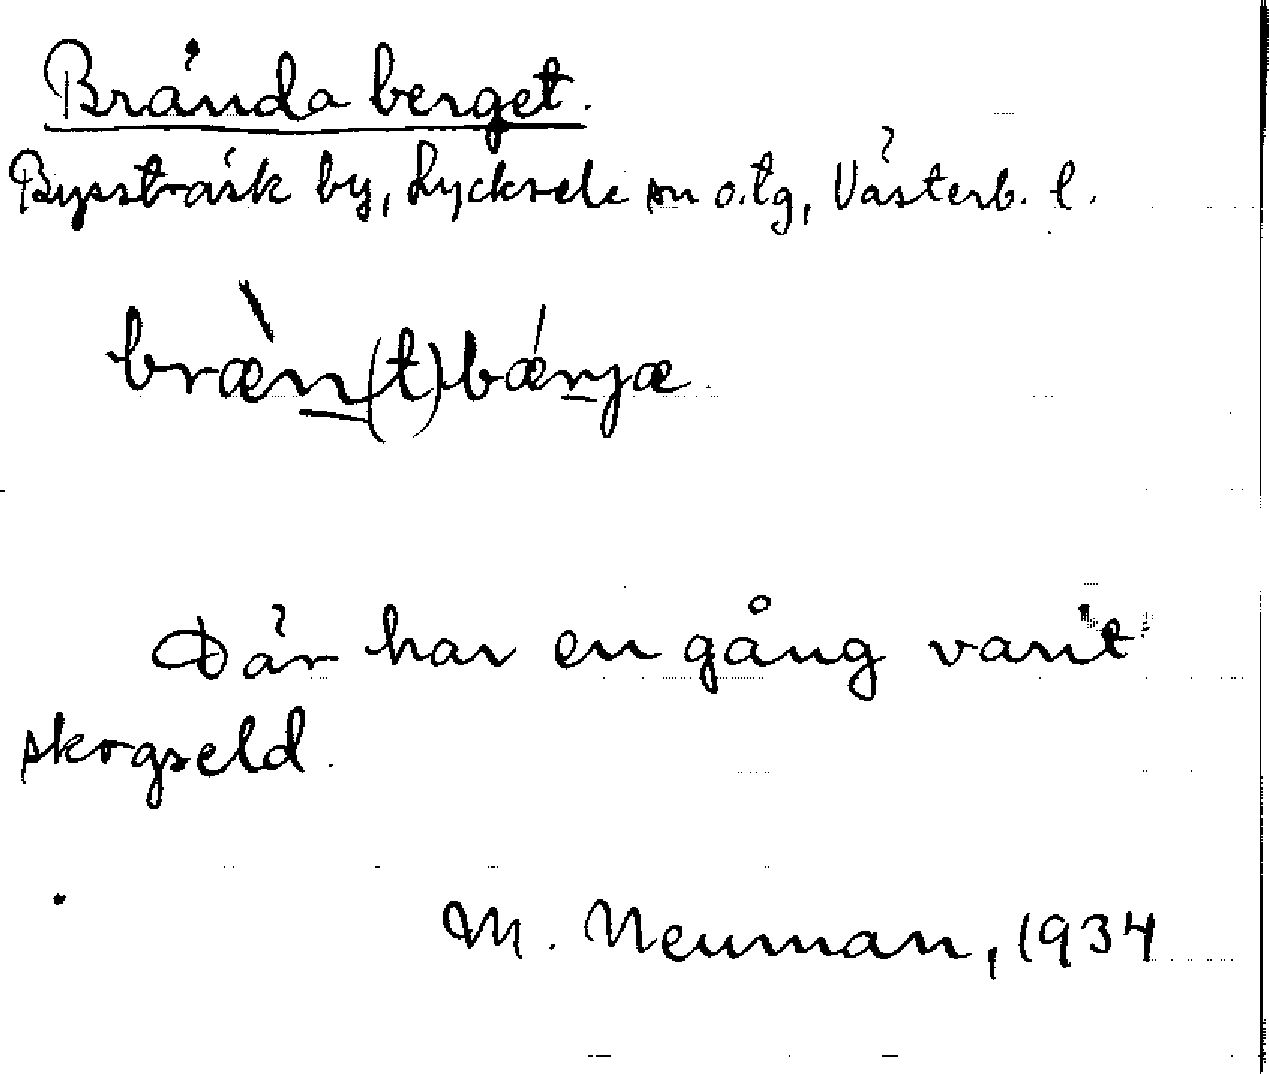 Brända berget.
Bysträsk by, Lycksele sn o. tg, Västerb. l.
bræ̀n(t)bǽrjæ.
Där har en gång varit
skogseld.
M. Neuman, 1934